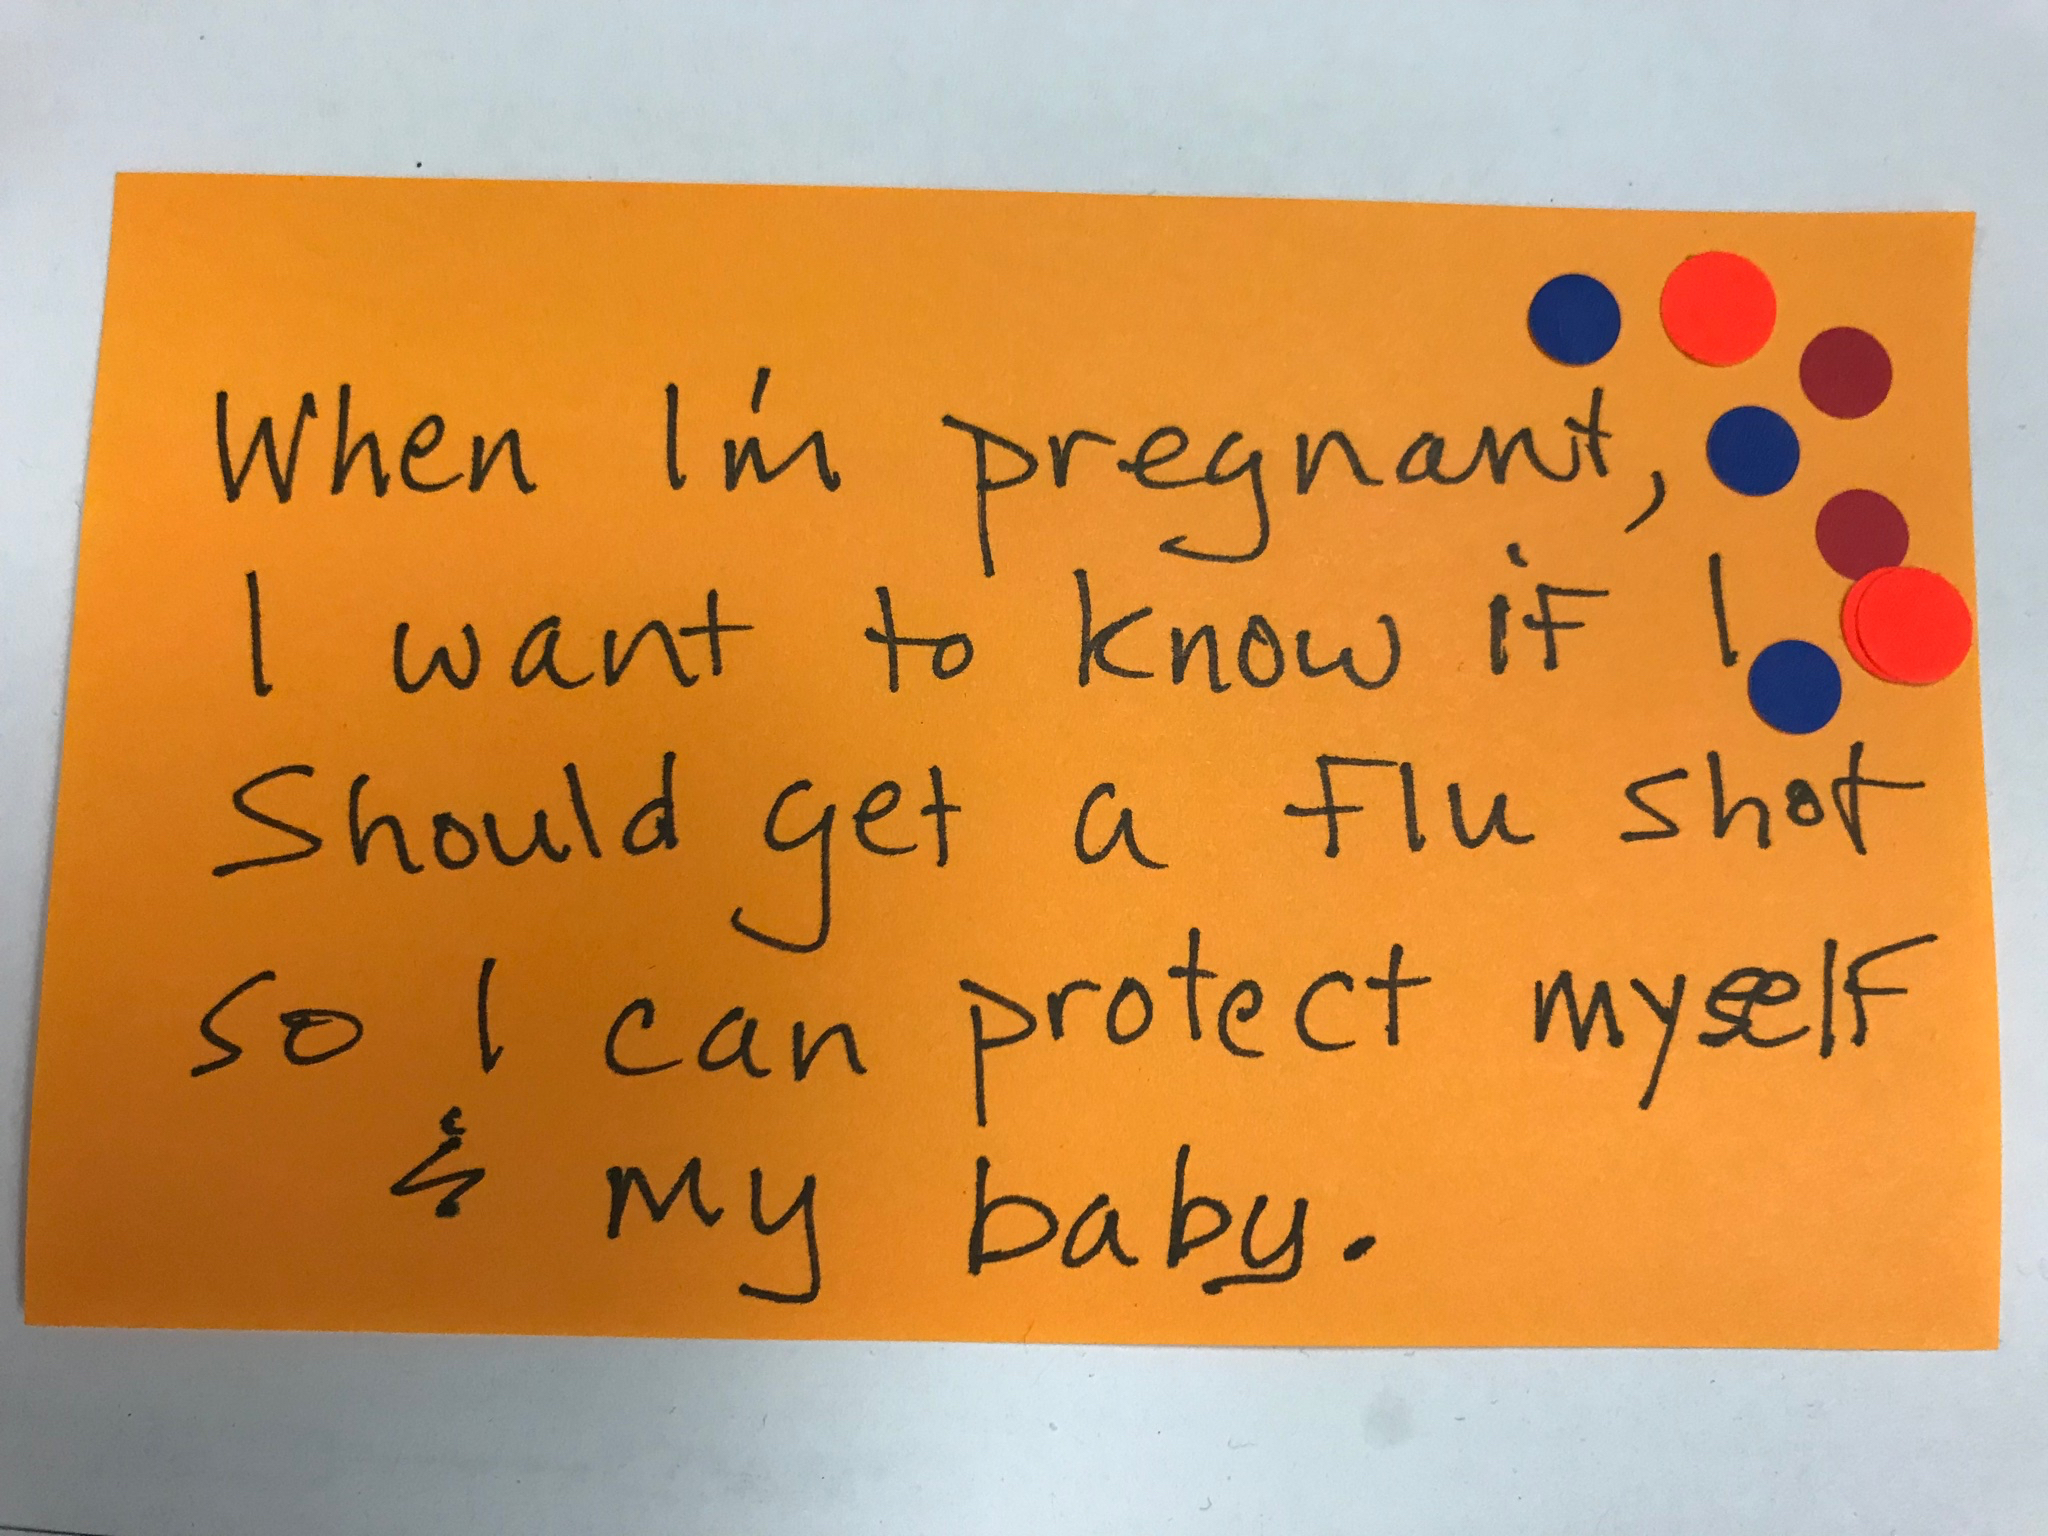 When I'm pregnant,
I want to know if I
Should get a flu shot
so I can protect myself
& my baby.